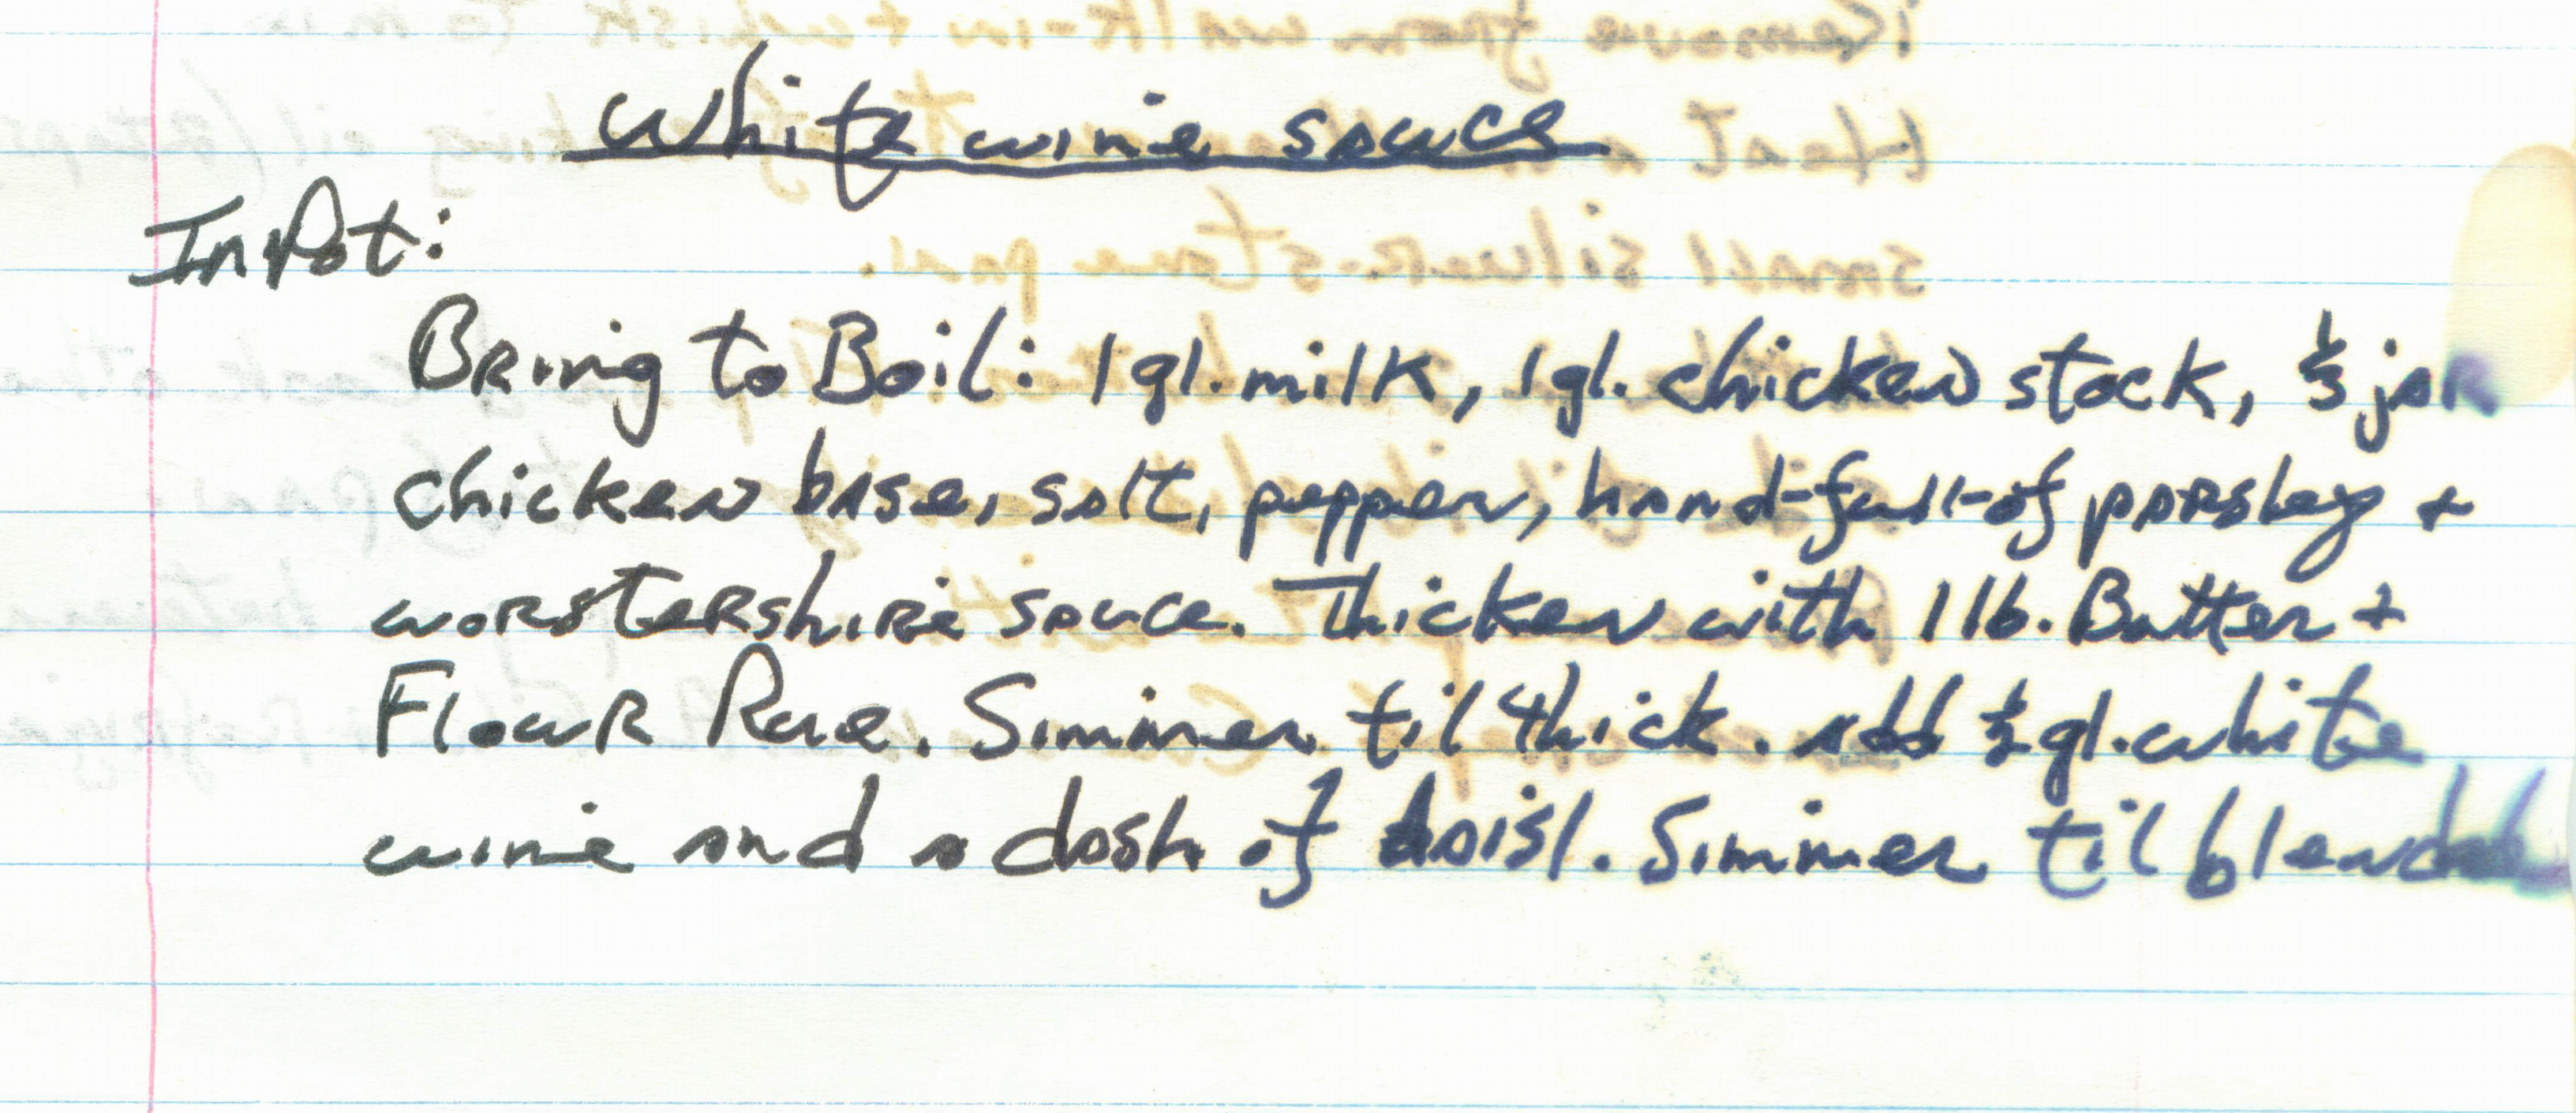 white wine sauce
In Pot:
Bring to Boil: 1 gl. milk, 1 gl. chicken stock, 1/3 jar
chicken base, salt, pepper, hand-full-of parsley +
worstershire sauce. Thicken with 1 lb. Butter +
Flour Rue. Simmer til thick. add 1/2 gl. white
wine and a dash of baisl. Simmer til blended